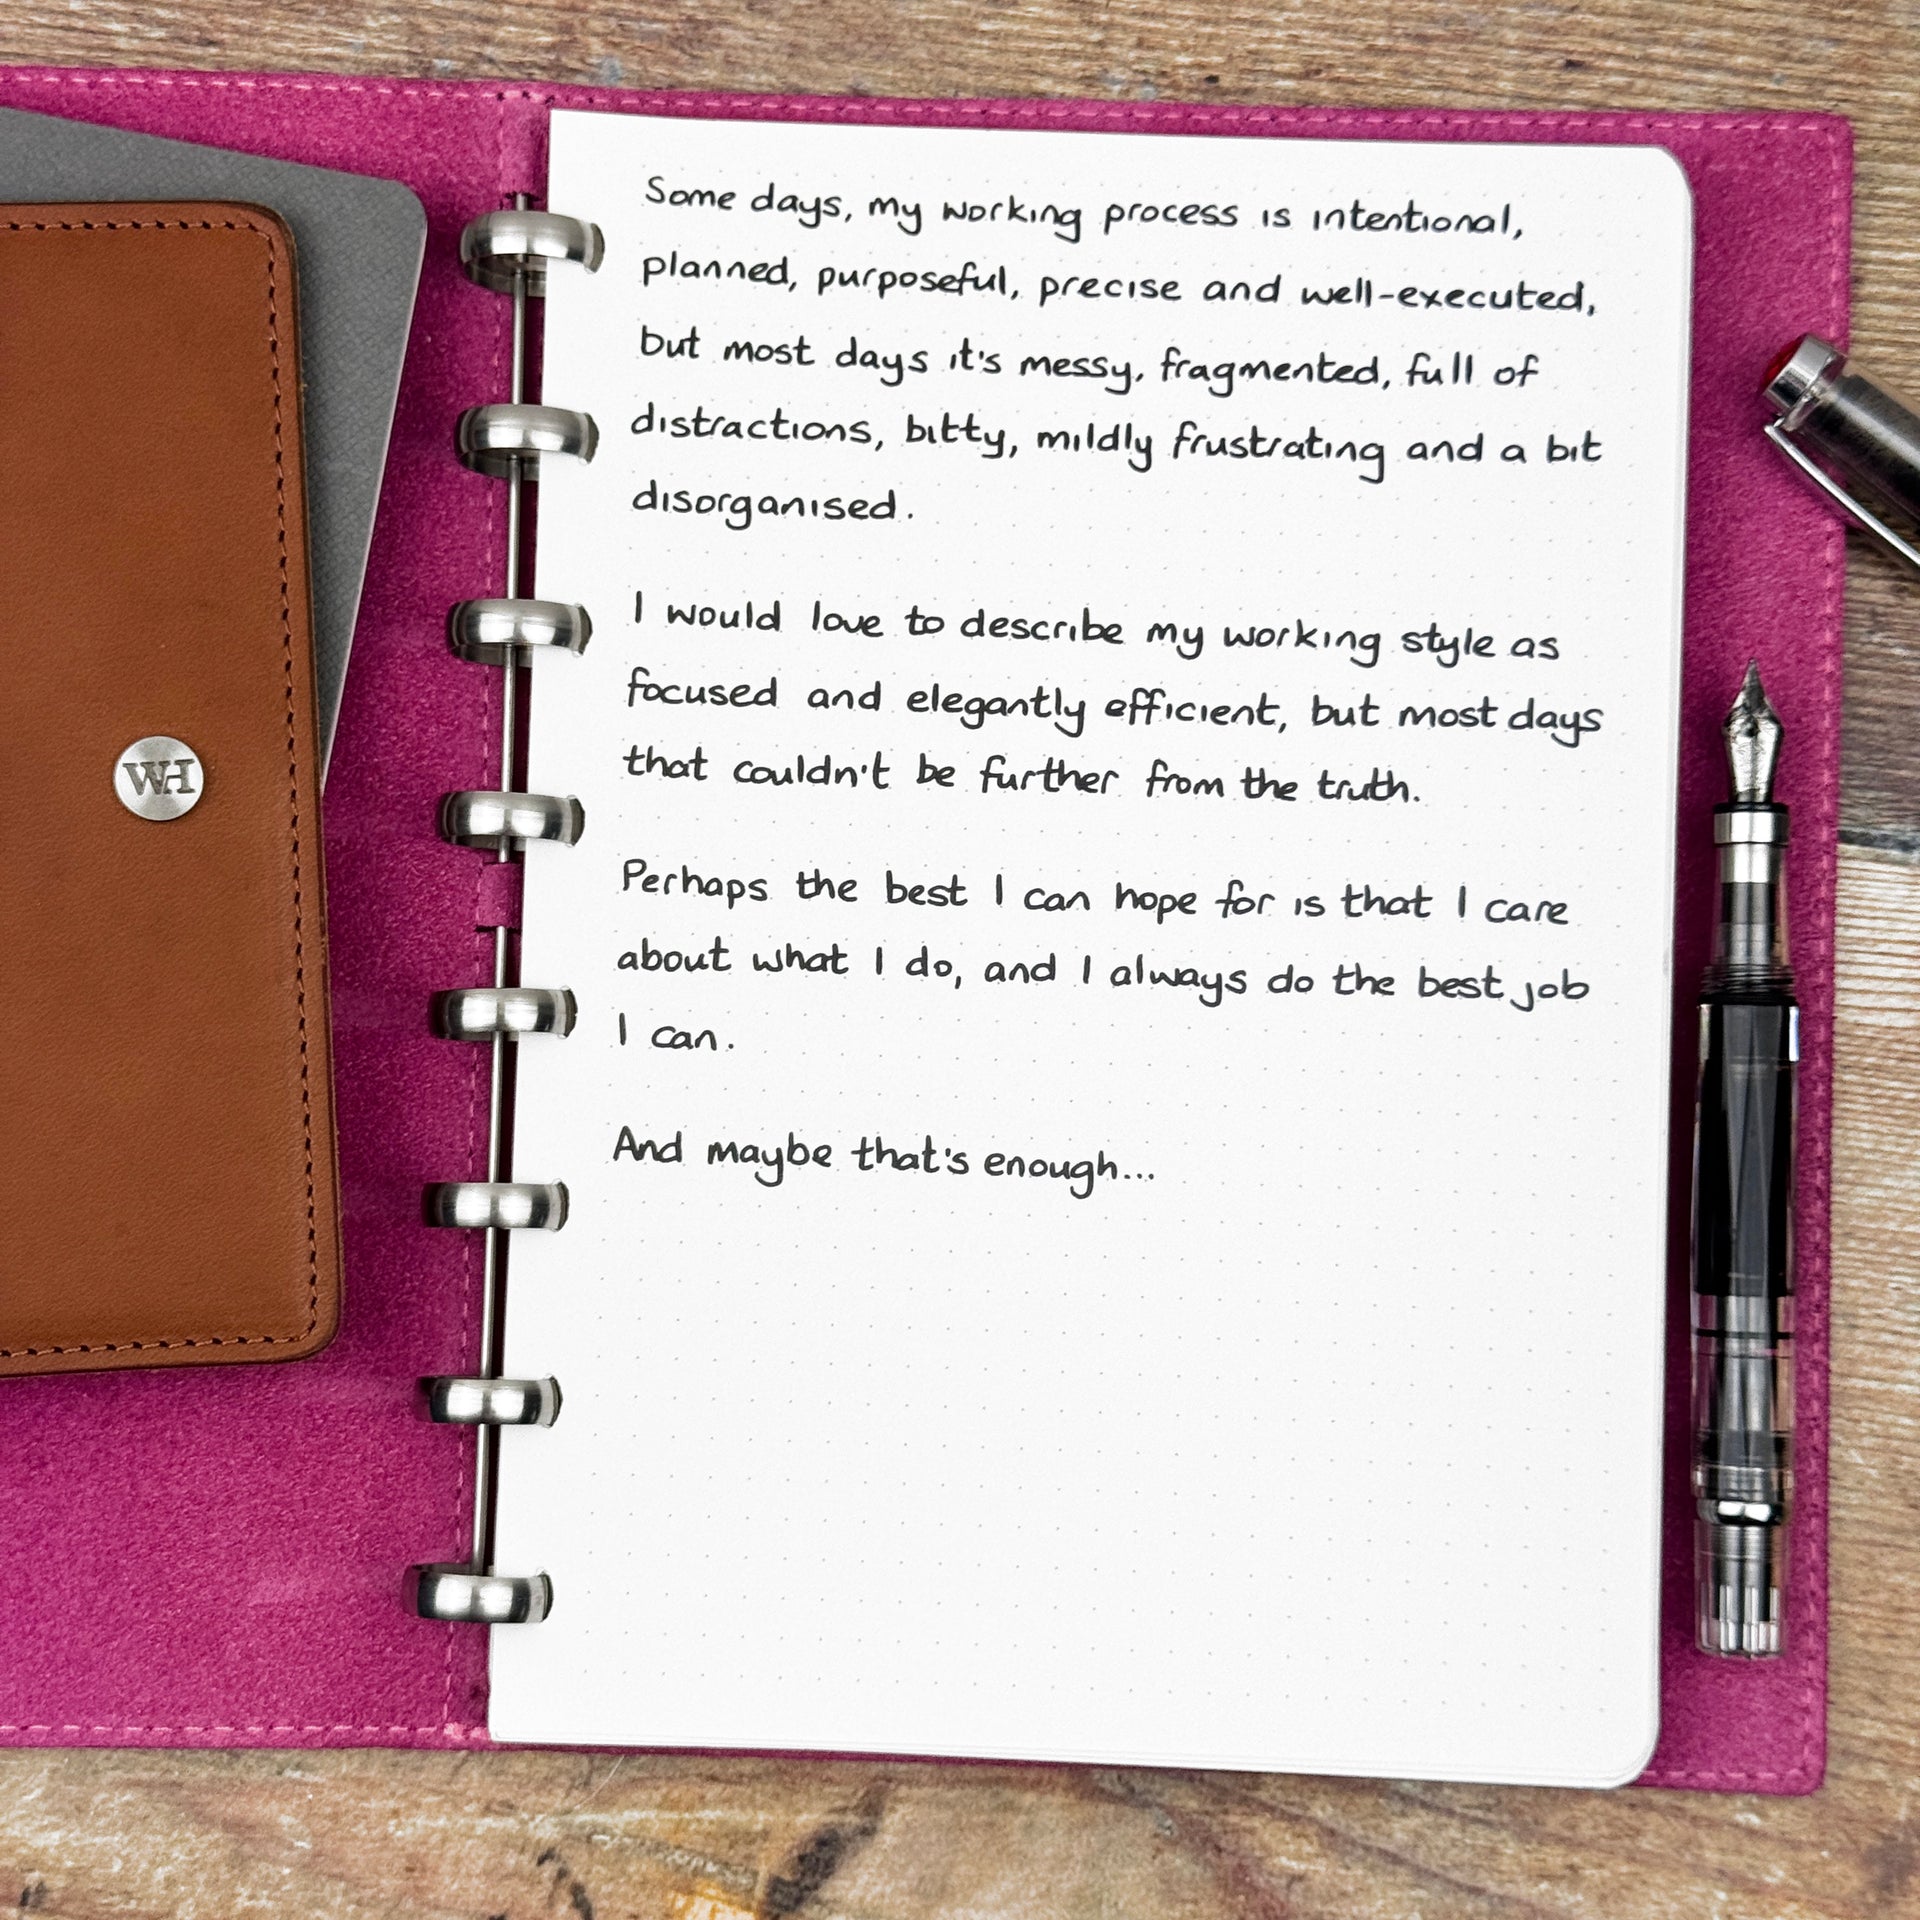 WH
Some days, my working process is intentional,
planned, purposeful, precise and well-executed,
but most days it's messy, fragmented, full of
distractions, bitty, mildly frustrating and a bit
disorganised.
I would love to describe my working style as
focused and elegantly efficient, but most days
that couldn't be further from the truth.
Perhaps the best I can hope for is that I care
about what I do, and I always do the best job
I can.
And maybe that's enough...